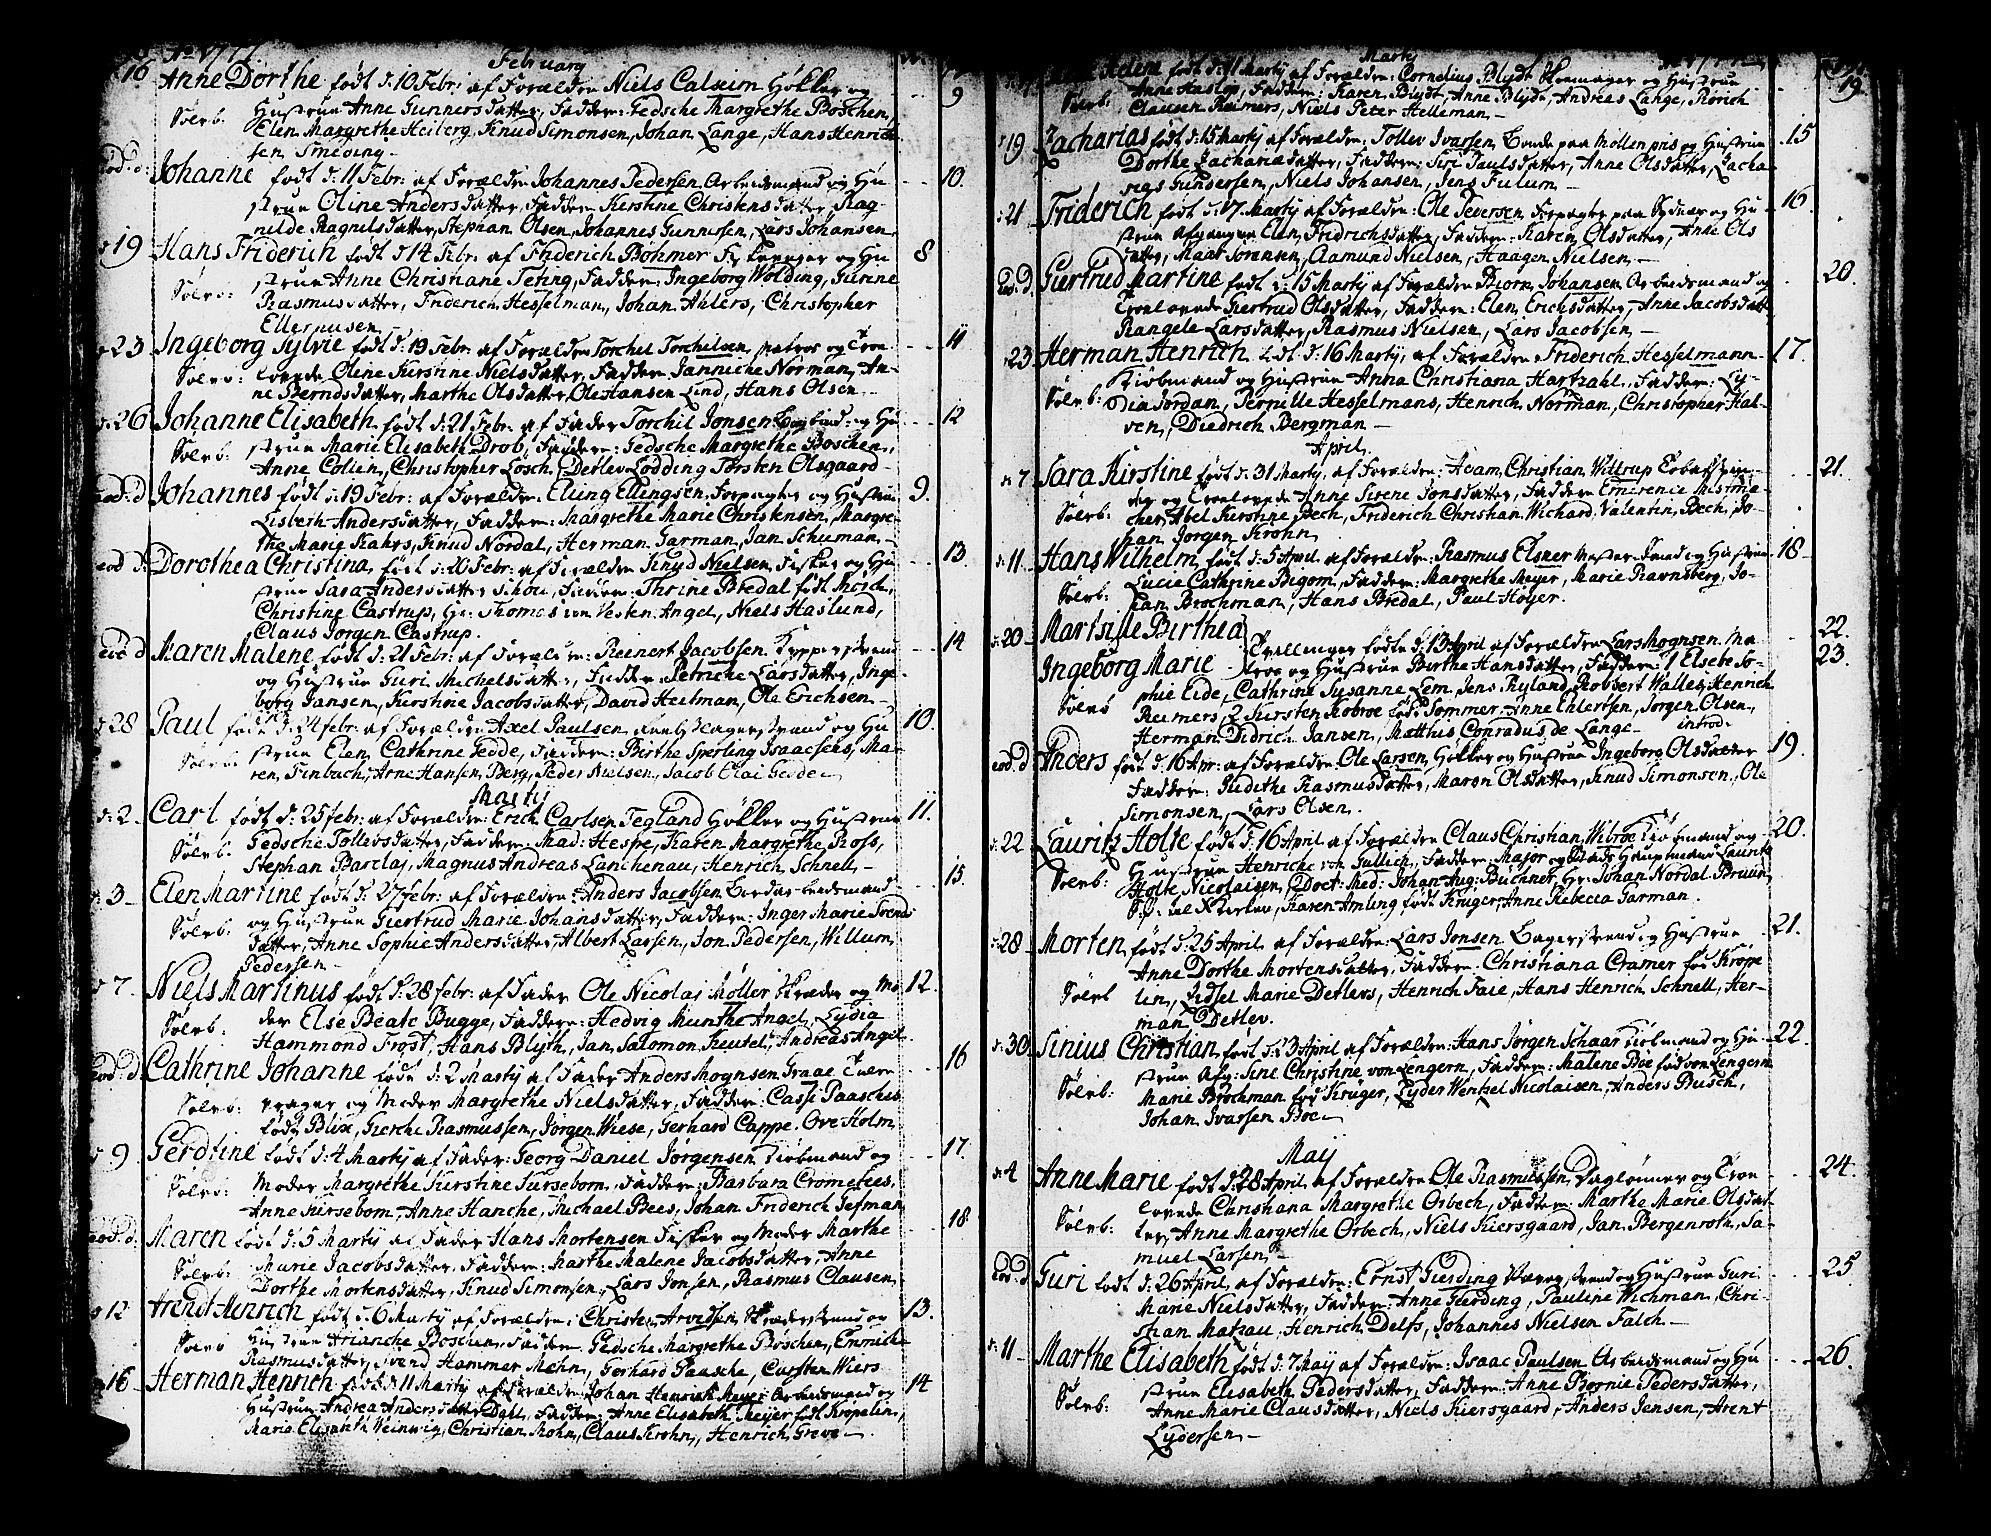 Ao 1777.
February
16 Anne Dorthe født d: 10 Febr: af Forældre Niels Calseim Høkker og 9
Sølvb. Hustrue Anne Gunnersdatter, Faddere: Gedsche Margrethe Boschen,
Elen Margrethe Heiberg, Knud Simonsen, Johan Lange, Hans Henrich
sen Smeding.
eod: d: Johanne født d: 11 Febr: af Forældre Johannes Pedersen Arbeidsmand og Hu 10.
strue Oline Andersdatter, Faddere Kirstine Christensdatter, Rag-
nilde Ragnilsdatter, Stephan Olsen, Johannes Gunnersen, Lars Johansen
19 Hans Friderich født d 14 Febr: af Friderich Bøhmer og Hu 8
Sølvb: strue Anne Christiane Teting, Faddere: Ingeborg Wolding, Gurine
Rasmusdatter, Friderich Hesselman, Johan Ahlers, Christopher
Ellerhusen
23 Ingeborg Sylvie født d: 19 Febr: af Forældre Torchil Torchilsen, Matros og Troe 11
Sølvb: lovede Oline Kirstine Nielsdatter, Faddere Janniche Norman, An-
ne Berndsdatter, Marthe Olsdatter, Ole Hansen Lind, Hans Olsen
26 Johanne Elisabeth født d: 21 Febr: af Fader Torchil Jonsen og Hu 12
Sølvb: strue Marie Elisabeth Drob, Faddere: Gedsche Margrethe Boschen,
Anne Collen, Christopher Losch, Detlev Lodding Torsten Olsgaard
eod: d Johannes født d: 19 Febr: af Forældre: Elling Ellingsen, Forpagter og Hustrue 9.
Lisbeth Andersdatter, Faddere: Margrethe Marie Christensen, Margre-
the Marie Kahrs, Knud Nordal, Herman Garman, Jan Schuman
eod d: Dorothea Christina, født d: 20 Febr: af Forældre Knud Nielsen, Fisker og Hu 13.
strue Sara Andersdatter Schou, Faddere: Thrine Bredal født
Christine Castrup, Hr: Thomas von Westen Angel, Niels Haslund,
Claus Jørgen Castrup.
eod d Maren Malene født d: 21 Febr: af Forældre: Reinert Jacobsen 14
og Hustrue Guri Michelsdatter, Faddere Petriche Larsdatter, Inge
borg Jansen, Kirstine Jacobsdatter, David Heitman, Ole Erichsen
28 Paul født d: 24 febr: af Forældre Axel Paulsen og Hu 10.
Sølvb: strue Elen Cathrine Gedde, Faddere: Birthe Sperling Isaachsens, Ma-
ren Finbach, Arne Hansen Berg, Peder Nielsen, Jacob Elai Gedde
Martij
2 Carl født d: 25 febr: af Forældre: Erich Carlsen Tegland Høkker og Hustrue 11.
Sølvb. Gedsche Tollevsdatter, Faddere Mad: Hespe, Karen Margrethe Ross,
Stephan Barclay, Magnus Andreas Lanchenau, Henrich Schnell
3 Elen Martine født d: 27 febr: af Forældre: Anders Jacobsen 15
Sølvb. og Hustrue Giertrud Marie Johansdatter, Faddere: Inger Marie Svends
datter, Anne Sophie Andersdatter, Albert Lassen, Jon Pedersen, Willum
Pedersen
7. Niels Martinus født d: 28 febr: af Fader Ole Nicolai Møller Skræder og Mo 12.
Sølvb. der Else Beate Bugge, Faddere: Hedvig Munthe Angel, Lydia
Hammond Frost, Hans Blyth, Jan Salomon Keutel, Andreas Angel
eod: d Cathrine Johanne født d: 2 Martij af Fader Anders Mognsen Graae 16
Sølvb: og Moder Margrethe Nielsdatter, Faddere: Cassi Paasches
født Blix, Gierche Rasmussen, Jørgen Wiese, Gerhard Cappe. Ove Holm
9 Gerdtine født d: 4 Martij af Fader: Georg Daniel Jørgensen Kiøbmand og 17.
Sølvb: Moder Margrethe Kirstine Kurseborn, Faddere: Barbara Cromebees,
Anne Kurseborn, Anne Hanche, Michael Bees, Johan Friderich Gefman
eod: d: Maren født d: 5 Martij af Fader Hans Mortensen Fisker og Moder Marthe 18.
Sølvb: Marie Jacobsdatter, Faddere: Marthe Malene Jacobsdatter, Anne
Dorthe Mortensdatter, Knud Simonsen, Lars Jonsen, Rasmus Clausen,
12 Arendt Henrich født d: 6 Martij af Forældre: Christen Arvedsen og 13.
Sølvb Hustrue Arianche Boschen, Faddere Gedsche Margrethe Boschen, Emmiche
Rasmusdatter, Svend Hammer Mehn, Gerhard Paasche, Carsten Wiers
16 Herman Henrich født d: 11 Martij af Forældre: Johan Henrich Meyer Arbeidsmand og 14
Hustrue Andrea Andersdatter Dahl, Faddere: Anne Elisabeth Meyer født Kropelin,
Marie Elisabeth Weinwig, Christian Mohn, Claus Krohn, Henrich Greve
Martij
19.
født d: 11 Martij af Forældre: Cornelius Blydt Skomager og Hustrue
Sølvb. Anne Faddere: Karen Blydt, Anne Blydt, Andreas Lange, Rørich
Clausen Reimers, Niels Peter Helleman
19 Zacharias født d: 15 Martij af Forældre: Tollev Ivarsen, Bonde paa Møllenpris og Hustrue 15
Dorthe Zachariædatter, Faddere: Siri Paulsdatter, Anne Olsdatter, Zacha
rias Gundersen, Niels Johansen, Jens Fulum
21 Friderich født d: 17 Martij af Forældre: Ole Seversen Forpagter paa Sydnæs og Hu 16.
strue afgangne Elen Fridrichsdatter, Faddere: Karen Olsdatter, Anne Ols
datter, Maat Sørensen, Aamund Nielsen, Haagen Nielsen
Eod: d. Giertrud Martine født d: 15 Martij af Forældre Biørn Johansen Arbeidsmand og 20.
Troelovede Giertrud Olsdatter, Faddere: Elen Erichsdatter, Anne Jacobsdatter
Rangele Larsdatter, Rasmus Nielsen, Lars Jacobsen,
23 Herman Henrich født d: 16 Martij, af Forældre Friderich Hesselmann 17.
Sølvb: Kiøbmand og Hustrue Anna Christiana Hartzahl, Faddere: Ly-
dia Jordan, Pernille Hesselmans, Henrich Norman, Christopher Kal-
ven, Diedrich Bergman
April.
7 Sara Kirstine født d: 31 Martij, af Forældre: Adam Christian Wiltrup 21.
Sølvb: og Troelovede Anne Sirene Jonsdatter, Faddere Emerenie Mistma-
cher, Abel Kirstine Bech, Friderich Christian Wichard, Valentin Bech, Jo-
han Jørgen Krohn
11 Hans Wilhelm født d: 5 April af Forældre: Rasmus Elsner og Hustrue 18
Sølvb: Lucie Cathrine Bigom, Faddere: Margrethe Meyer, Marie Ravnsberg, Jo-
han Brochman, Hans Bredal, Paul Høyer.
20 Martsille Birthea Tvillinger fødte d: 13 April af Forældre Lars Mognsen Ma- 22.
Ingeborg Marie tros og Hustrue Birthe Hansdatter, Faddere: 1 Elsebe So- 23.
Sølvb phie Eide, Cathrine Susanne Lem, Jens Ryland, Robbert Wallet, Henrich
Reimers, 2 Kirsten Kobroe født Sommer, Anne Ehlertsen, Jørgen Olsen,
Herman Didrich Jansen, Matthis Conradus de Lange. introd.
eod d Anders født d: 16 Apr: af Forældre Ole Larsen, Høkker og Hustrue Ingeborg Olsdatter 19.
Faddere: Judithe Rasmusdatter, Maren Olsdatter, Knud Simonsen, Ole
Simonsen, Lars Olsen.
22 Lauritz Holte født d: 16 April af Forældre Claus Christian Wibroe Kiøbmand og 20.
Sølvb: Hustrue Henriche von Gullich, Faddere: Major og Hauptmand Lauritz
Holte Nicolaisen, Doct: Med: Johan Aug: Büchner, Hr: Johan Nordal Bruun,
Karen Amling født Kruger, Anne Rebecca Garman.
28 Morten født d: 25 April af Forældre: Lars Jonsen og Hustrue 21.
Sølvb Anne Dorthe Mortensdatter, Faddere: Christiana Cramer født Krope
lin, Zidsel Marie Detlevs, Henrich Faie, Hans Henrich Schnell, Her-
man Detlev.
30 Sinius Christian født d: 23 April af Forældre: Hans Jørgen Schaar Kiøbmand og Hu- 22.
Sølvb: strue Afg: Sine Christine von Lengern, Faddere: Malene Boe født von Lengern
Marie Brochman født Krüger, Lyder Wentzel Nicolaisen, Anders Busch,
Johan Ivarsen Boe
Maij
4 Anne Marie født d: 28 April af Forældre Ole Rasmussen Dagløner og Troe 24.
Sølvb: lovede Christiana Margrethe Orbech, Faddere: Marthe Marie Olsdat
ter, Anne Margrethe Orbech, Niels Kiersgaard, Jan Bergenroth, Sa-
muel Larsen
Eod: d Guri født d: 26 April af Forældre: Ernst Gierding og Hustrue Guri 25
Marie Nielsdatter, Faddere: Anne Gierding, Pauline Wichman, Chri-
stian Matzau, Henrich Delfs, Johannes Nielsen Falch
11 Marthe Elisabeth født d: 7 Maij af Forældre: Isaac Paulsen Arbeidsmand og Hu 26.
Sølvb: strue Elisabeth Pedersdatter, Faddere: Anne Bornie Pedersdatter,
Anne Marie Clausdatter, Niels Kiersgaard, Anders Jensen, Arent
Lydersen